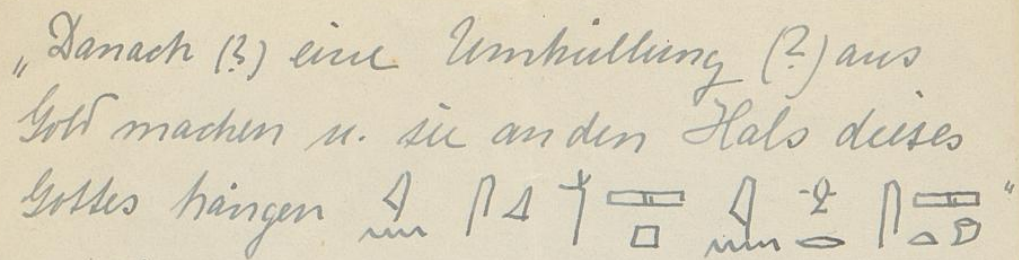 „Danach (?) eine Umhüllung (?) aus
Gold machen u. sie an den Hals dieses
Gottes hängen "